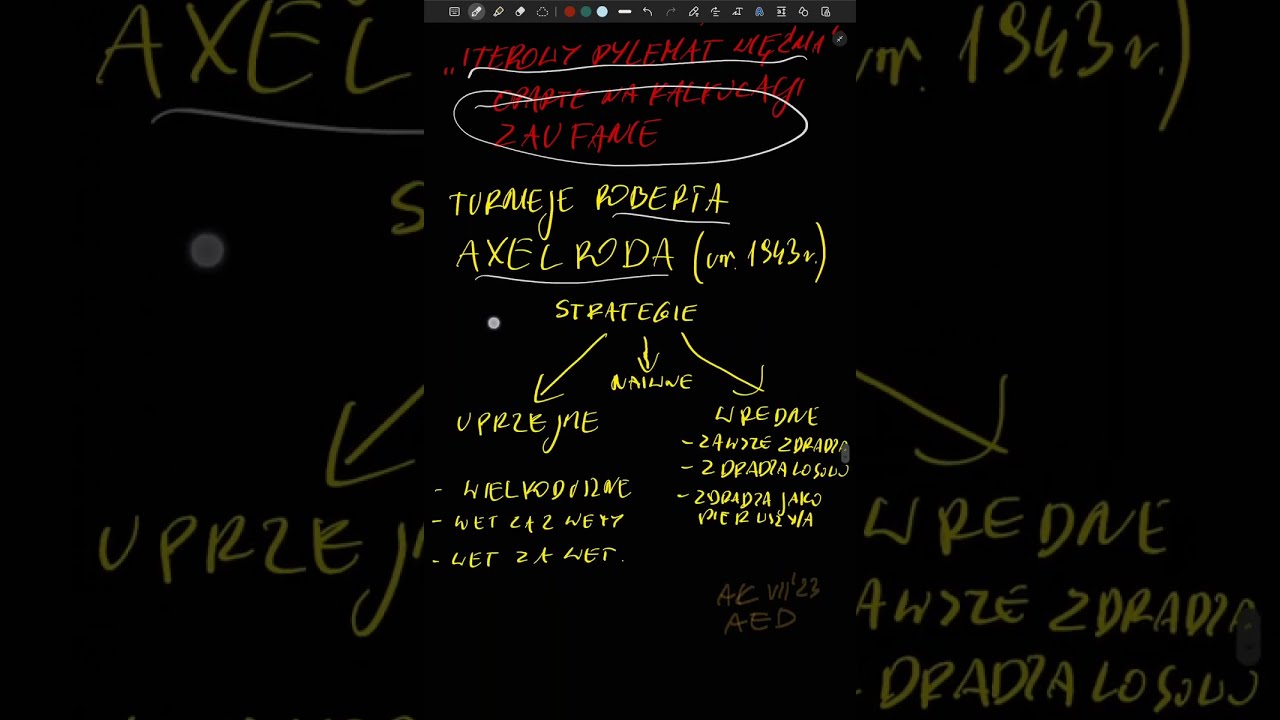 „ITEROWY DYLEMAT WIĘŹNIA"
OPARTE NA KALKULACJI
ZAUFANIE
TURNIEJE ROBERTA
AXELRODA (ur. 1943 r.)
STRATEGIE
NAIWNE
UPRZEJME
WREDNE
- ZAWSZE ZDRADZA
- ZDRADZA LOSOWO
- ZDRADZA JAKO
PIERWSZA
- WIELKODUSZNE
- WET ZA 2 WETY
- WET ZA WET.
AŁ VII'23
AED